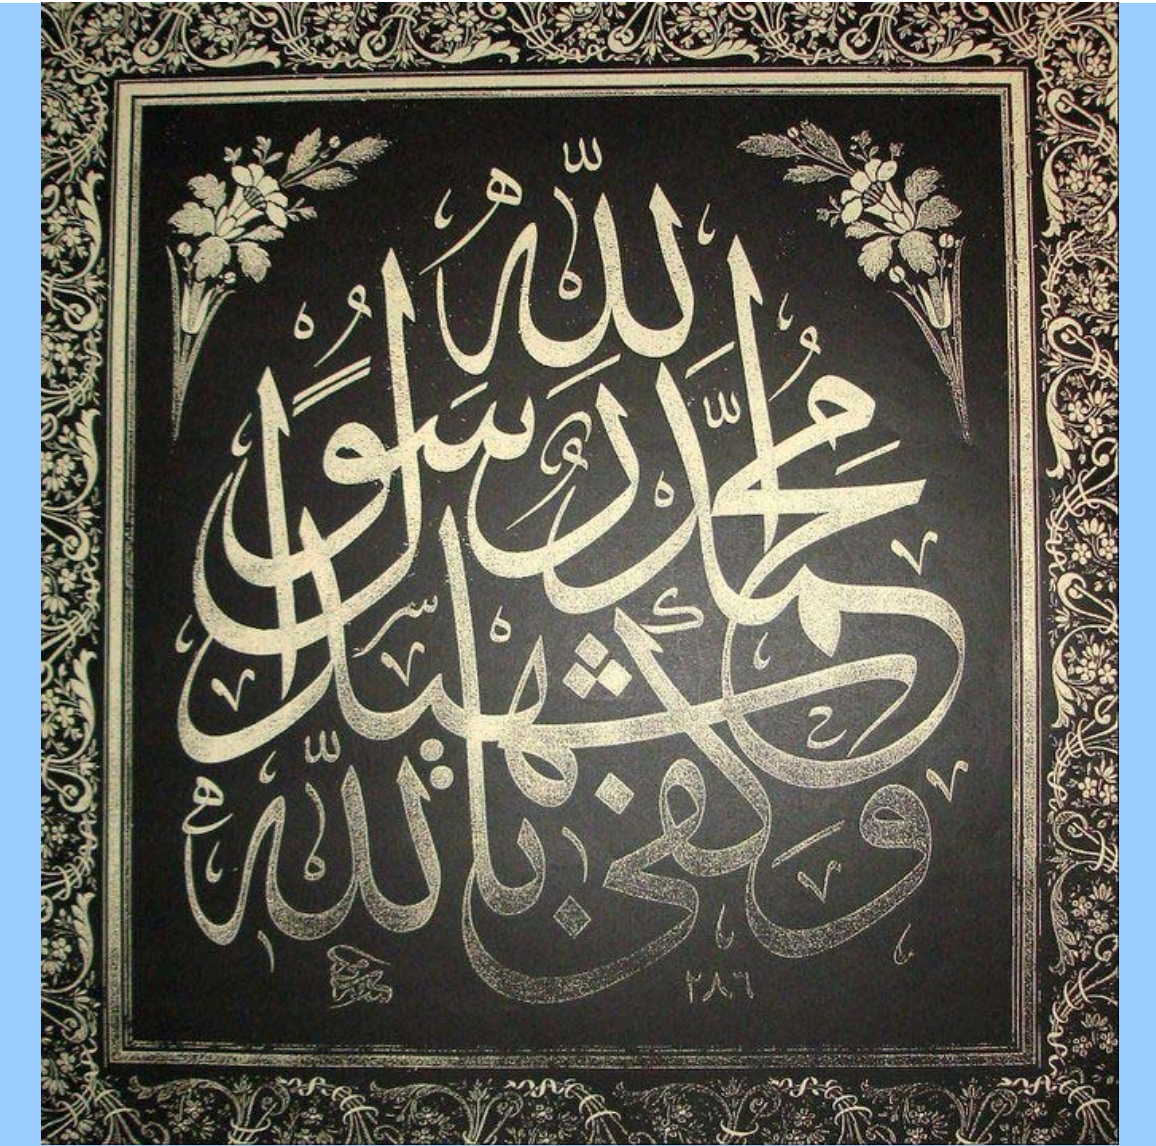 وكفى بالله
شهيدا
محمد رسول
الله
٢٨٦